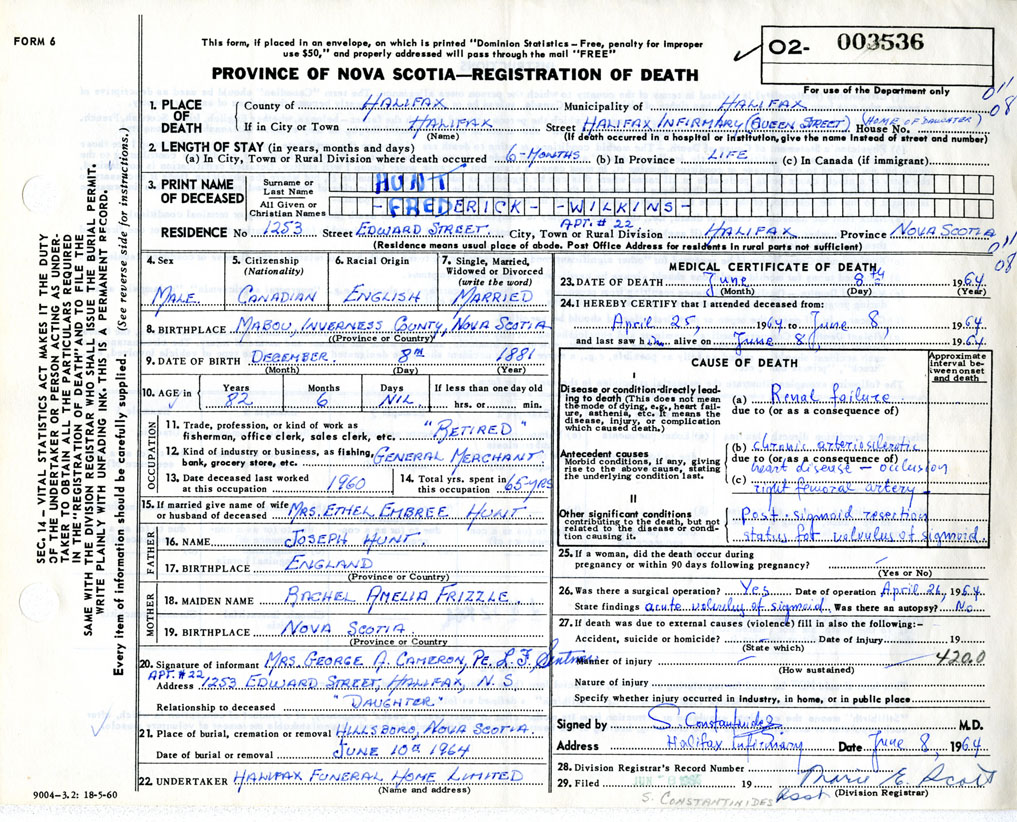 FORM 6
This form, if placed in an envelope, on which is printed "Dominion Statistics – Free, penalty for improper
use $50," and properly addressed will pass through the mail "FREE"
PROVINCE OF NOVA SCOTIA—REGISTRATION OF DEATH
02- 003536
For use of the Department only
011
08
SEC. 14 – VITAL STATISTICS ACT MAKES IT THE DUTY
OF THE UNDERTAKER OR PERSON ACTING AS UNDER-
TAKER TO OBTAIN ALL THE PARTICULARS REQUIRED
IN THE "REGISTRATION OF DEATH" AND TO FILE THE
SAME WITH THE DIVISION REGISTRAR WHO SHALL ISSUE THE BURIAL PERMIT.
WRITE PLAINLY WITH UNFADING INK. THIS IS A PERMANENT RECORD.
Every item of information should be carefully supplied. (See reverse side for instructions.)
1. PLACE OF DEATH
County of HALIFAX Municipality of HALIFAX
If in City or Town HALIFAX Street HALIFAX INFIRMARY (QUEEN STREET) House No. (HOME OF DAUGHTER)
(Name) (If death occurred in a hospital or institution, give the name instead of street and number)
2. LENGTH OF STAY (in years, months and days)
(a) In City, Town or Rural Division where death occurred 6-MONTHS (b) In Province LIFE (c) In Canada (if immigrant)
3. PRINT NAME OF DECEASED
Surname or Last Name HUNT
All Given or Christian Names -FREDERICK- -WILKINS-
APT. # 22
RESIDENCE No 1253 Street EDWARD STREET City, Town or Rural Division HALIFAX Province NOVA SCOTIA
(Residence means usual place of abode. Post Office Address for residents in rural parts not sufficient)
011
08
4. Sex
MALE
5. Citizenship (Nationality)
CANADIAN
6. Racial Origin
ENGLISH
7. Single, Married, Widowed or Divorced (write the word)
MARRIED
8. BIRTHPLACE MABOU, INVERNESS COUNTY, NOVA SCOTIA
(Province or Country)
9. DATE OF BIRTH DECEMBER 8TH 1881
(Month) (Day) (Year)
10. AGE in Years Months Days If less than one day old
82 6 NIL hrs. or min.
OCCUPATION
11. Trade, profession, or kind of work as
fisherman, office clerk, sales clerk, etc. "RETIRED"
12. Kind of industry or business, as fishing,
bank, grocery store, etc. GENERAL MERCHANT
13. Date deceased last worked
at this occupation 1960
14. Total yrs. spent in
this occupation 65-YRS
15. If married give name of wife
or husband of deceased MRS. ETHEL EMBREE HUNT
FATHER
16. NAME JOSEPH HUNT
17. BIRTHPLACE ENGLAND
(Province or Country)
MOTHER
18. MAIDEN NAME RACHEL AMELIA FRIZZLE
19. BIRTHPLACE NOVA SCOTIA
(Province or Country
20. Signature of informant MRS. GEORGE A. CAMERON, Pe. L. F.
APT. #22
Address 1253 EDWARD STREET, HALIFAX, N. S
Relationship to deceased "DAUGHTER"
21. Place of burial, cremation or removal HILLSBORO, NOVA SCOTIA.
Date of burial or removal JUNE 10th 1964
22. UNDERTAKER HALIFAX FUNERAL HOME LIMITED
(Name and address)
9004–3.2: 18-5-60
MEDICAL CERTIFICATE OF DEATH
23. DATE OF DEATH June 8th 1964
(Month) (Day) (Year)
24. I HEREBY CERTIFY that I attended deceased from:
April 25, 1964 to June 8, 1964
and last saw him alive on June 8, 1964
CAUSE OF DEATH
Approximate interval between onset and death
I
Disease or condition directly lead-
ing to death (This does not mean
the mode of dying, e.g., heart fail-
ure, asthenia, etc. It means the
disease, injury, or complication
which caused death.)
(a) Renal failure
due to (or as a consequence of)
Antecedent causes
Morbid conditions, if any, giving
rise to the above cause, stating
the underlying condition last.
(b) chronic arteriosclerotic
due to (or as a consequence of)
heart disease – occlusion
(c) right femoral artery
II
Other significant conditions
contributing to the death, but not
related to the disease or condi-
tion causing it.
Post-sigmoid resection
status for volvulus of sigmoid.
25. If a woman, did the death occur during
pregnancy or within 90 days following pregnancy? –
(Yes or No)
26. Was there a surgical operation? Yes Date of operation April 26, 1964
State findings acute volvulus of sigmoid Was there an autopsy? No
27. If death was due to external causes (violence) fill in also the following:–
Accident, suicide or homicide? – Date of injury 19
(State which)
Manner of injury – 420.0
(How sustained)
Nature of injury
Specify whether injury occurred in industry, in home, or in public place
Signed by S. Constantinides M.D.
Address Halifax Infirmary Date June 8, 1964
28. Division Registrar's Record Number
29. Filed 19 Marie E. Scott
Asst (Division Registrar)
S. CONSTANTINIDES